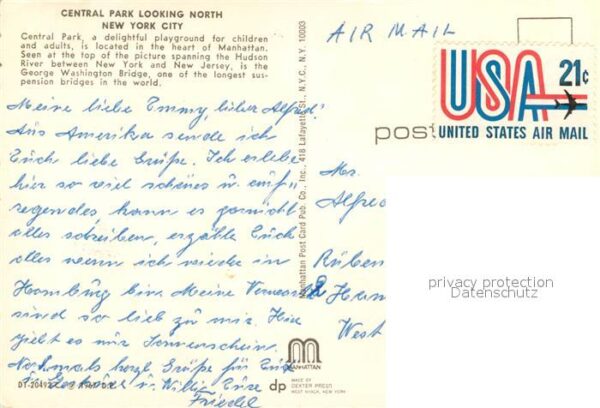 CENTRAL PARK LOOKING NORTH
NEW YORK CITY
Central Park, a delightful playground for children
and adults, is located in the heart of Manhattan.
Seen at the top of the picture spanning the Hudson
River between New York and New Jersey, is the
George Washington Bridge, one of the longest sus-
pension bridges in the world.
Meine liebe Emmy, lieber Alfred!
Aus Amerika sende ich
Euch liebe Grüße. Ich erlebe
hier so viel schönes u. auf-
regendes, kann es garnicht
alles schreiben, erzähle Euch
alles wenn ich wieder in
Hamburg bin. Meine
sind so lieb zu mir. Hier
gibt es nur Sonnenschein.
Nochmals herzl. Grüße für Euch
u. Willi Eure
Friedel
DT-20492
MANHATTAN
dp
MADE BY
DEXTER PRESS
WEST NYACK, NEW YORK
Manhattan Post Card Pub. Co., Inc., 418 Lafayette St., N.Y.C., N.Y. 10003
AIR MAIL
USA 21c
UNITED STATES AIR MAIL
post
Alfred
West
privacy protection
Datenschutz